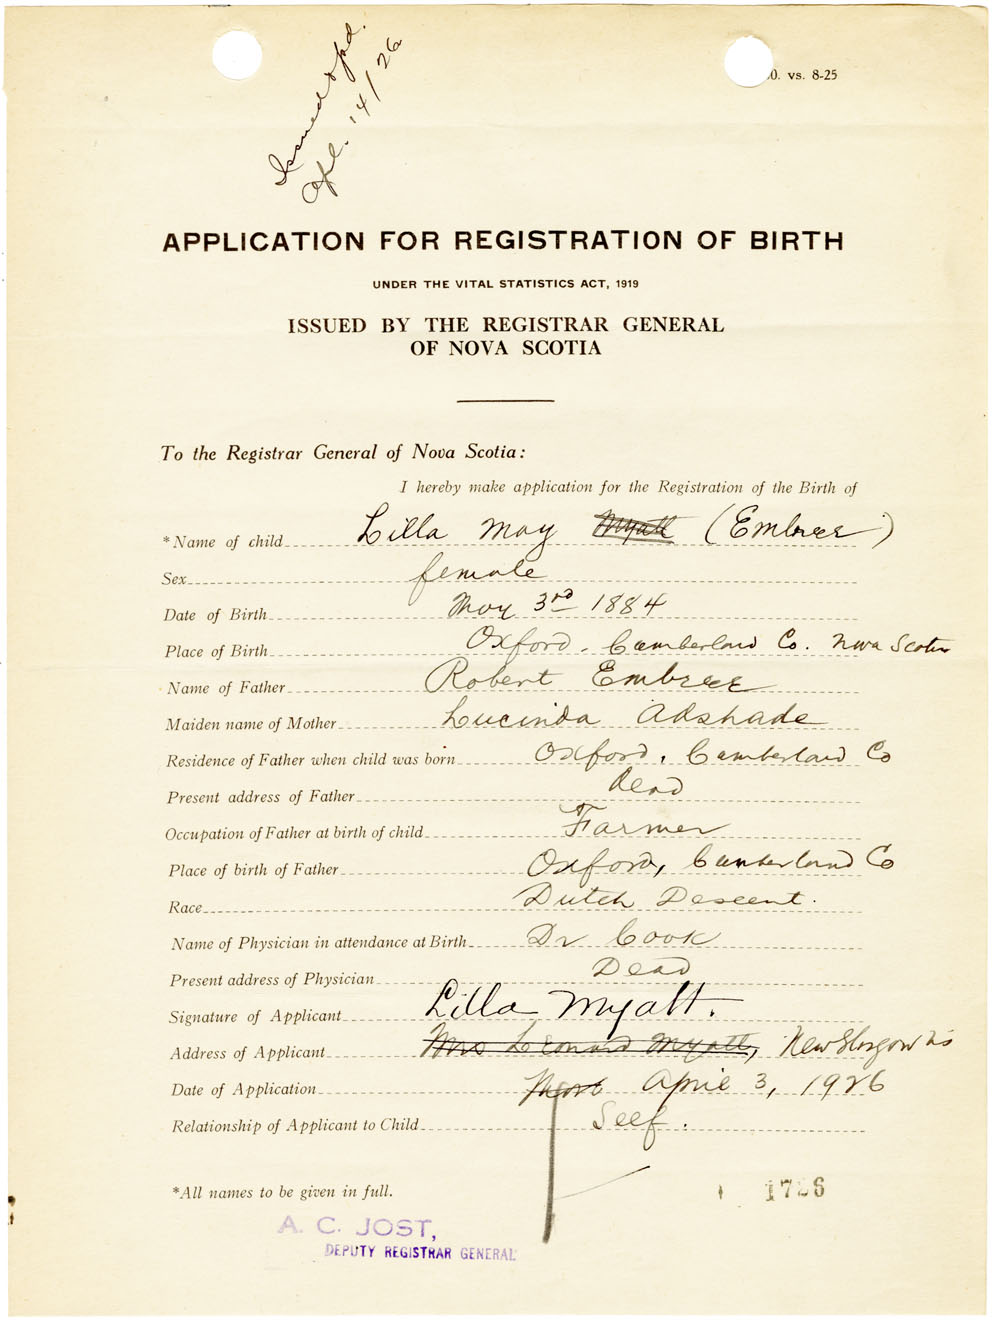 Issued & pd.
Apl. 14/26
0. vs. 8-25
APPLICATION FOR REGISTRATION OF BIRTH
UNDER THE VITAL STATISTICS ACT, 1919
ISSUED BY THE REGISTRAR GENERAL
OF NOVA SCOTIA
To the Registrar General of Nova Scotia:
I hereby make application for the Registration of the Birth of
*Name of child Lilla May Myatt (Embree)
Sex female
Date of Birth May 3rd 1884
Place of Birth Oxford, Cumberland Co. Nova Scotia
Name of Father Robert Embree
Maiden name of Mother Lucinda Adshade
Residence of Father when child was born Oxford, Cumberland Co
Present address of Father Dead
Occupation of Father at birth of child Farmer
Place of birth of Father Oxford, Cumberland Co
Race Dutch Descent.
Name of Physician in attendance at Birth Dr Cook
Present address of Physician Dead
Signature of Applicant Lilla Myatt.
Address of Applicant Mrs Leonard Myatt, New Glasgow NS
Date of Application April 3, 1926
Relationship of Applicant to Child Self.
*All names to be given in full.
A. C. JOST,
DEPUTY REGISTRAR GENERAL